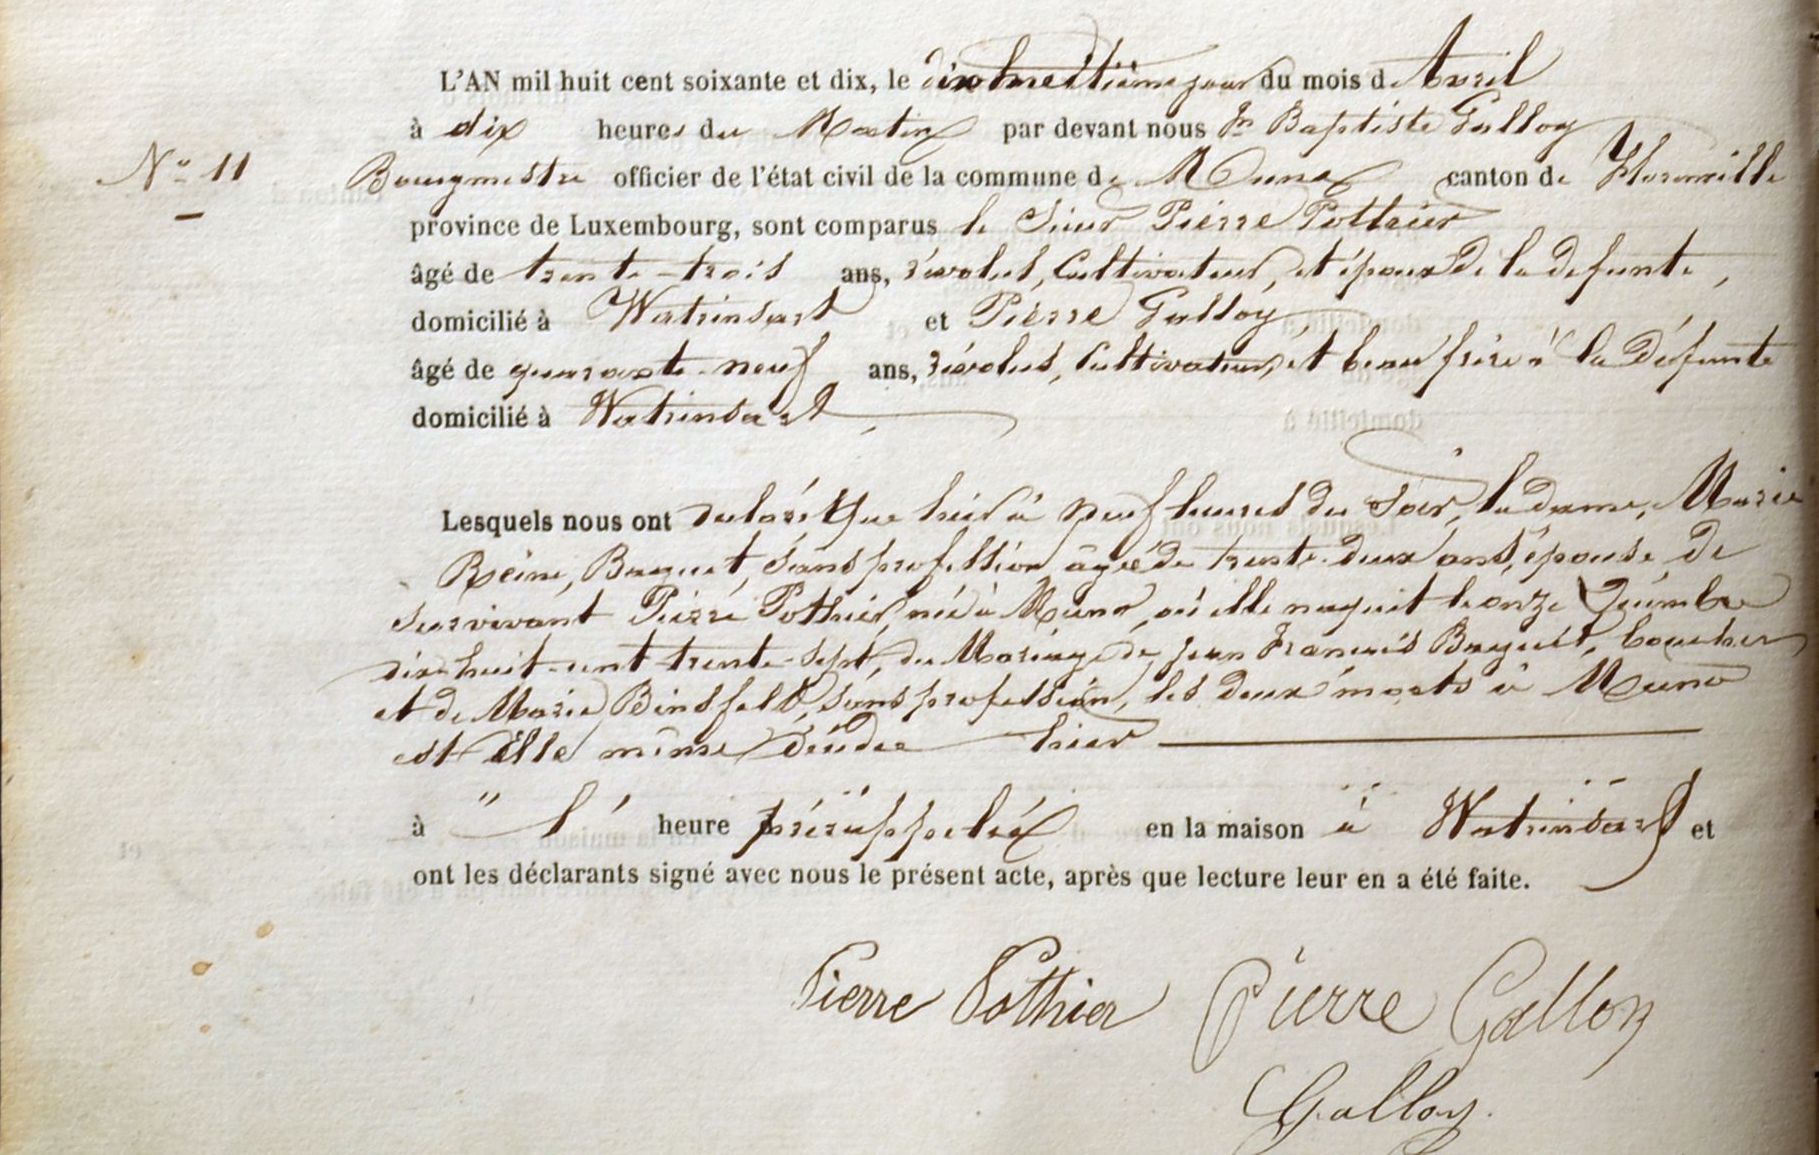 L'AN mil huit cent soixante et dix, le dix huitième jour du mois d'Avril
à dix heures du Matin par devant nous Jn Baptiste Galloy
N° 11 Bourgmestre officier de l'état civil de la commune de Muno canton de Florenville
province de Luxembourg, sont comparus le Sieur Pierre Pothier
âgé de trente-trois ans, révolus, Cultivateur, et époux de la defunte,
domicilié à Watrinsart et Pierre Galloy
âgé de quarante-neuf ans, révolus, Cultivateur, et beau frère à la Défunte
domicilié à Watrinsart,
Lesquels nous ont déclaré que hier à neuf heures du Soir, la dame, Marie
Reine, Baquet, sans profession âgée de trente-deux ans, épouse de
survivant Pierre Pothier, née à Muno, où elle naquit le onze
dix-huit-cent-trente-sept, du Mariage de Jean François Baquet, boucher
et de Marie Binsfeld, sans profession, les deux morts à Muno
est Elle même décédée hier
à l' heure prérappelée en la maison à Watrinsart et
ont les déclarants signé avec nous le présent acte, après que lecture leur en a été faite.
Pierre Pothier Pierre Galloy
Galloy.